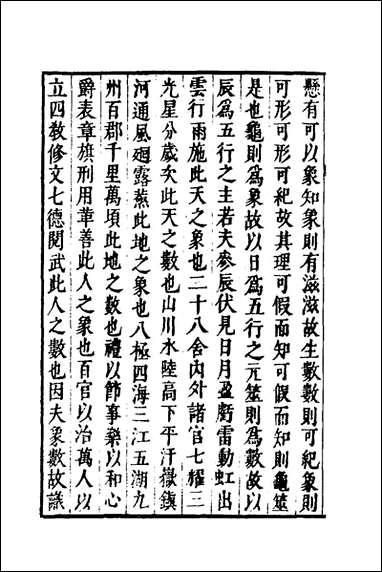 懸有可以象知象則有滋滋故生數數則可紀象則
可形可形可紀故其理可假而知可假而知則龜筮
是也龜則為象故以日為五行之元筮則為數故以
辰為五行之主若夫參辰伏見日月盈虧雷動虹出
雲行雨施此天之象也二十八舍內外諸官七耀三
光星分歲次此天之數也山川水陸高下平汙嶽鎮
河通風廻露蒸此地之象也八極四海三江五湖九
州百郡千里萬頃此地之數也禮以節事樂以和心
爵表章旗刑用革善此人之象也百官以治萬人以
立四教修文七德閱武此人之數也因夫象數故議